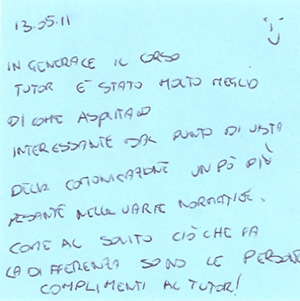 13.05.11
IN GENERALE IL CORSO
TUTOR E' STATO MOLTO MEGLIO
DI COME ASPETTAVO
INTERESSANTE DAL PUNTO DI VISTA
DELLA COMUNICAZIONE UN PÒ PIÙ
PESANTE NELLE VARIE NORMATIVE.
COME AL SOLITO CIÒ CHE FA
LA DIFFERENZA SONO LE PERSONE
COMPLIMENTI AL TUTOR!